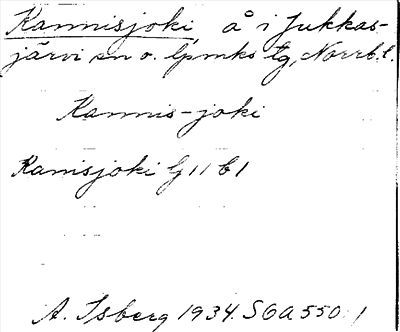 Kannisjoki, å i Jukkas-
järvi sn o. lpmks tg, Norrb. l.
Kannis-joki
Kamisjoki G 11 b 1
A. Isberg 1934. SOA 550: 1